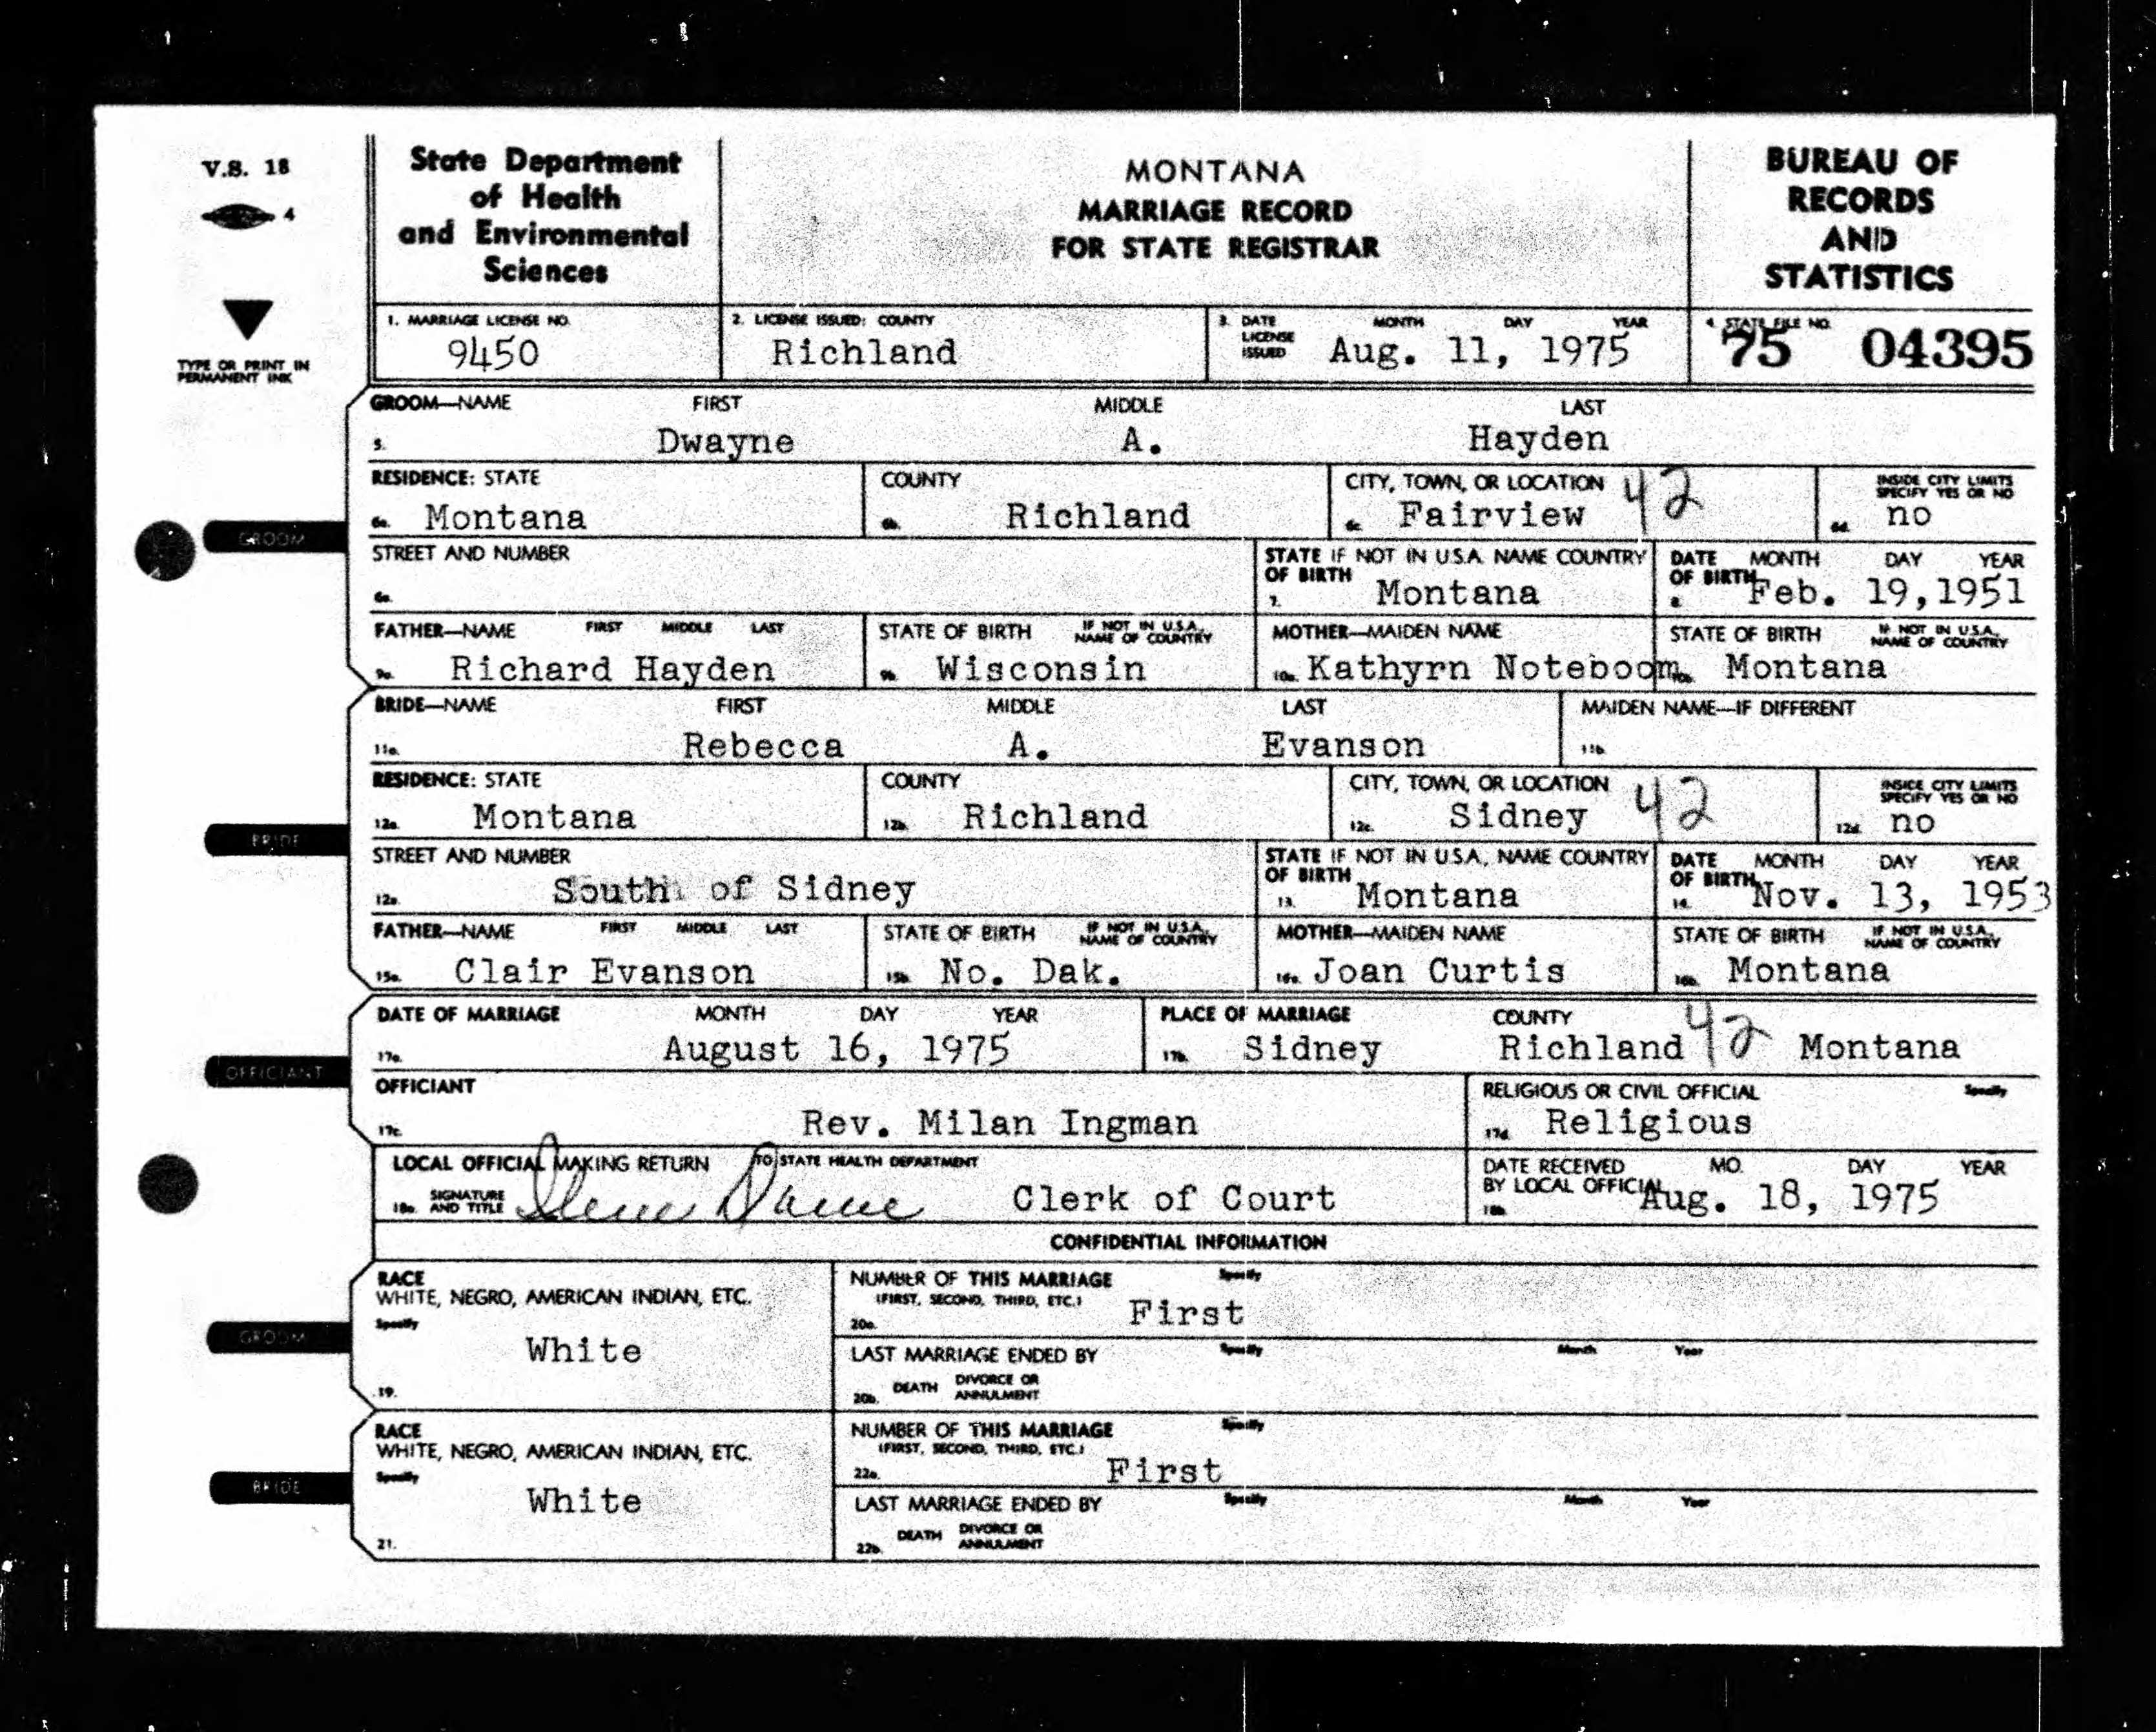 V.S. 18
4
TYPE OR PRINT IN
PERMANENT INK
State Department
of Health
and Environmental
Sciences
MONTANA
MARRIAGE RECORD
FOR STATE REGISTRAR
BUREAU OF
RECORDS
AND
STATISTICS
1. MARRIAGE LICENSE NO. 2. LICENSE ISSUED: COUNTY 3. DATE LICENSE ISSUED MONTH DAY YEAR 4. STATE FILE NO.
9450 Richland Aug. 11, 1975 75 04395
GROOM—NAME FIRST MIDDLE LAST
5. Dwayne A. Hayden
RESIDENCE: STATE COUNTY CITY, TOWN, OR LOCATION 42 INSIDE CITY LIMITS SPECIFY YES OR NO
GROOM
6a. Montana 6b. Richland 6c. Fairview 6d. no
STREET AND NUMBER STATE IF NOT IN U.S.A. NAME COUNTRY DATE MONTH DAY YEAR
OF BIRTH OF BIRTH
6e. 7. Montana 8. Feb. 19,1951
FATHER—NAME FIRST MIDDLE LAST STATE OF BIRTH IF NOT IN U.S.A., NAME OF COUNTRY MOTHER—MAIDEN NAME STATE OF BIRTH IF NOT IN U.S.A., NAME OF COUNTRY
9a. Richard Hayden 9b. Wisconsin 10a. Kathyrn Noteboom 10b. Montana
BRIDE—NAME FIRST MIDDLE LAST MAIDEN NAME—IF DIFFERENT
11a. Rebecca A. Evanson 11b.
RESIDENCE: STATE COUNTY CITY, TOWN, OR LOCATION 42 INSIDE CITY LIMITS SPECIFY YES OR NO
BRIDE
12a. Montana 12b. Richland 12c. Sidney 12d. no
STREET AND NUMBER STATE IF NOT IN U.S.A., NAME COUNTRY DATE MONTH DAY YEAR
OF BIRTH OF BIRTH
12e. South of Sidney 13. Montana 14. Nov. 13, 1953
FATHER—NAME FIRST MIDDLE LAST STATE OF BIRTH IF NOT IN U.S.A., NAME OF COUNTRY MOTHER—MAIDEN NAME STATE OF BIRTH IF NOT IN U.S.A., NAME OF COUNTRY
15a. Clair Evanson 15b. No. Dak. 16a. Joan Curtis 16b. Montana
DATE OF MARRIAGE MONTH DAY YEAR PLACE OF MARRIAGE COUNTY 42
17a. August 16, 1975 17b. Sidney Richland Montana
OFFICIANT
OFFICIANT RELIGIOUS OR CIVIL OFFICIAL Specify
17c. Rev. Milan Ingman 17d. Religious
LOCAL OFFICIAL MAKING RETURN TO STATE HEALTH DEPARTMENT DATE RECEIVED MO. DAY YEAR
BY LOCAL OFFICIAL
18a. SIGNATURE AND TITLE Clerk of Court 18b. Aug. 18, 1975
CONFIDENTIAL INFORMATION
RACE NUMBER OF THIS MARRIAGE Specify
WHITE, NEGRO, AMERICAN INDIAN, ETC. (FIRST, SECOND, THIRD, ETC.)
Specify 20a. First
GROOM
White LAST MARRIAGE ENDED BY Specify Month Year
19. 20b. DEATH DIVORCE OR ANNULMENT
RACE NUMBER OF THIS MARRIAGE Specify
WHITE, NEGRO, AMERICAN INDIAN, ETC. (FIRST, SECOND, THIRD, ETC.)
Specify 22a. First
BRIDE
White LAST MARRIAGE ENDED BY Specify Month Year
21. 22b. DEATH DIVORCE OR ANNULMENT